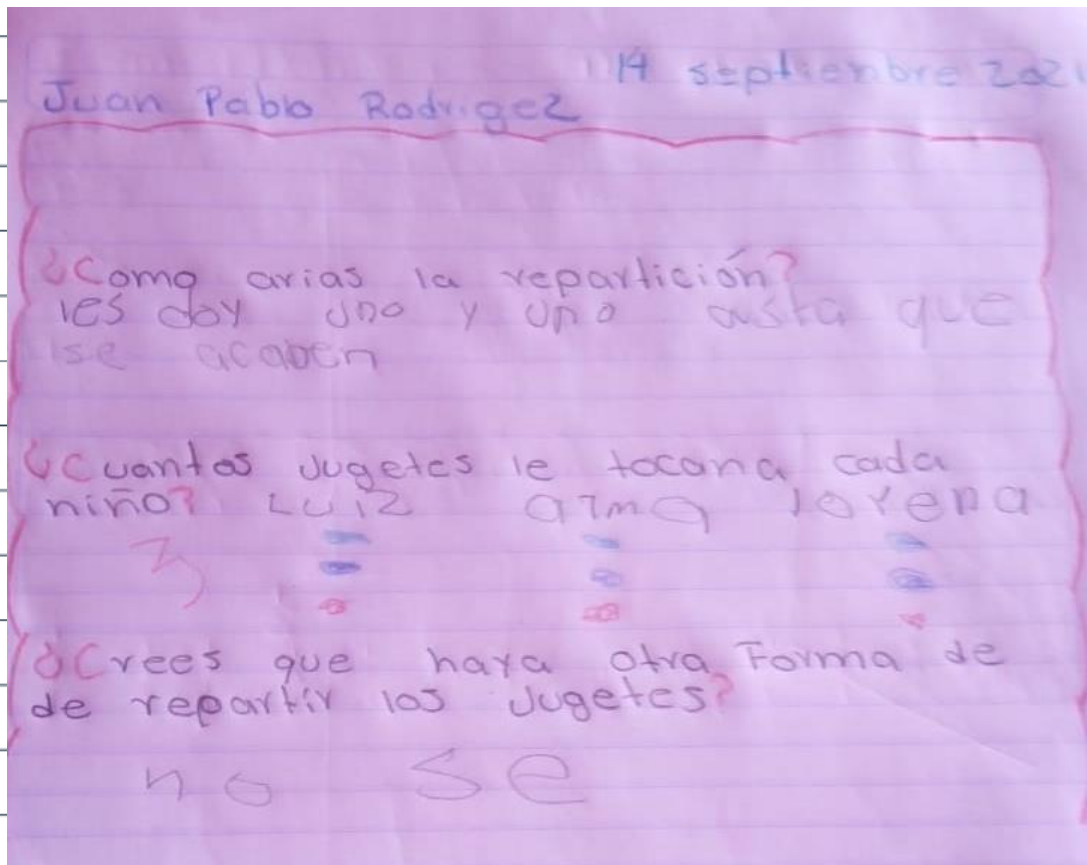 14 septienbre 202
Juan Pablo Rodrigez
¿Como arias la repartición?
les doy uno y uno asta que
se acaben
¿Cuantos Jugetes le tocana cada
niño? Luiz alma lorena
3
¿Crees que haya otra Forma de
de repartir los Jugetes?
no se